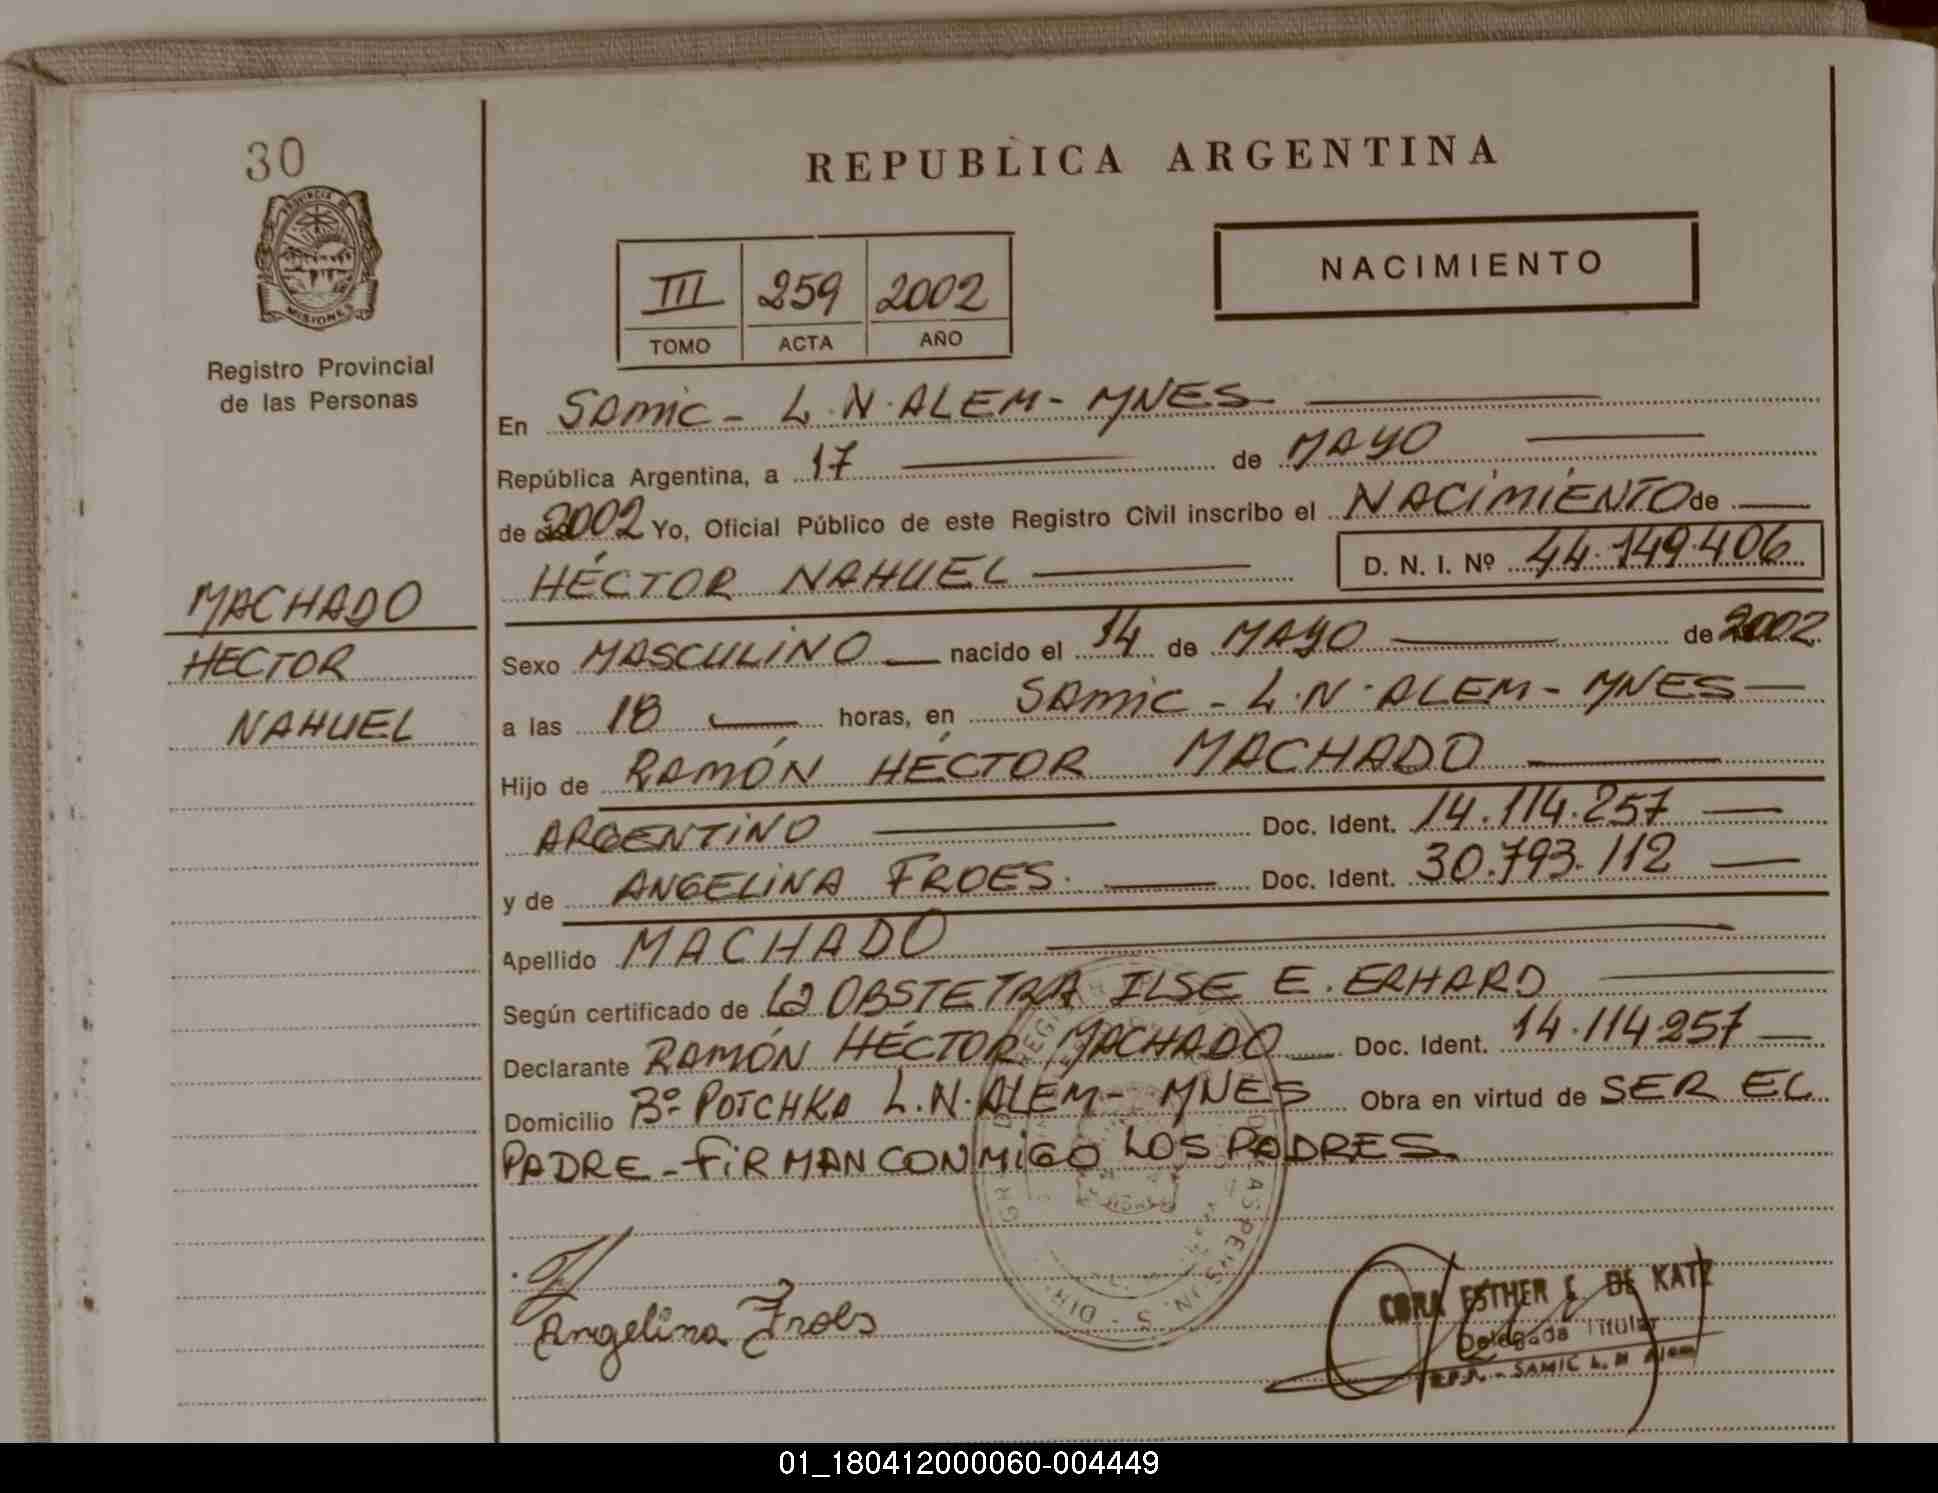 30
PROVINCIA DE
MISIONES
Registro Provincial
de las Personas
MACHADO
HECTOR
NAHUEL
REPUBLICA ARGENTINA
III 259 2002
TOMO ACTA AÑO
NACIMIENTO
En SAMIC - L.N. ALEM - MNES
República Argentina, a 17 de MAYO
de 2002 Yo, Oficial Público de este Registro Civil inscribo el NACIMIENTO de
HÉCTOR NAHUEL D. N. I. Nº 44.149.406
Sexo MASCULINO nacido el 14 de MAYO de 2002
a las 18 horas, en SAMIC - L.N. ALEM - MNES
Hijo de RAMÓN HÉCTOR MACHADO
ARGENTINO Doc. Ident. 14.114.257
y de ANGELINA FROES. Doc. Ident. 30.793.112
Apellido MACHADO
Según certificado de La OBSTETRA ILSE E. ERHARD
Declarante RAMÓN HÉCTOR MACHADO Doc. Ident. 14.114.257
Domicilio Bº POTCHKA L.N. ALEM - MNES Obra en virtud de SER EL
PADRE - FIRMAN CONMIGO LOS PADRES.
Angelina Froes
CORA ESTHER E. DE KATZ
Delegada Titular
R.P.P. - SAMIC L. N Alem
01_180412000060-004449